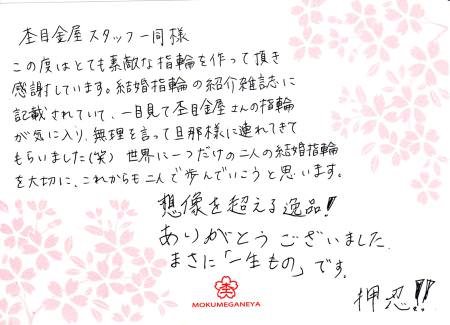 杢目金屋スタッフ一同様
この度はとても素敵な指輪を作って頂き
感謝しています。結婚指輪の紹介雑誌に
記載されていて、一目見て杢目金屋さんの指輪
が気に入り、無理を言って旦那様に連れてきて
もらいました(笑) 世界に一つだけの二人の結婚指輪
を大切に、これからも二人で歩んでいこうと思います。
想像を超える逸品!!
ありがとうございました。
まさに「一生もの」です。
押忍!!
MOKUMEGANEYA